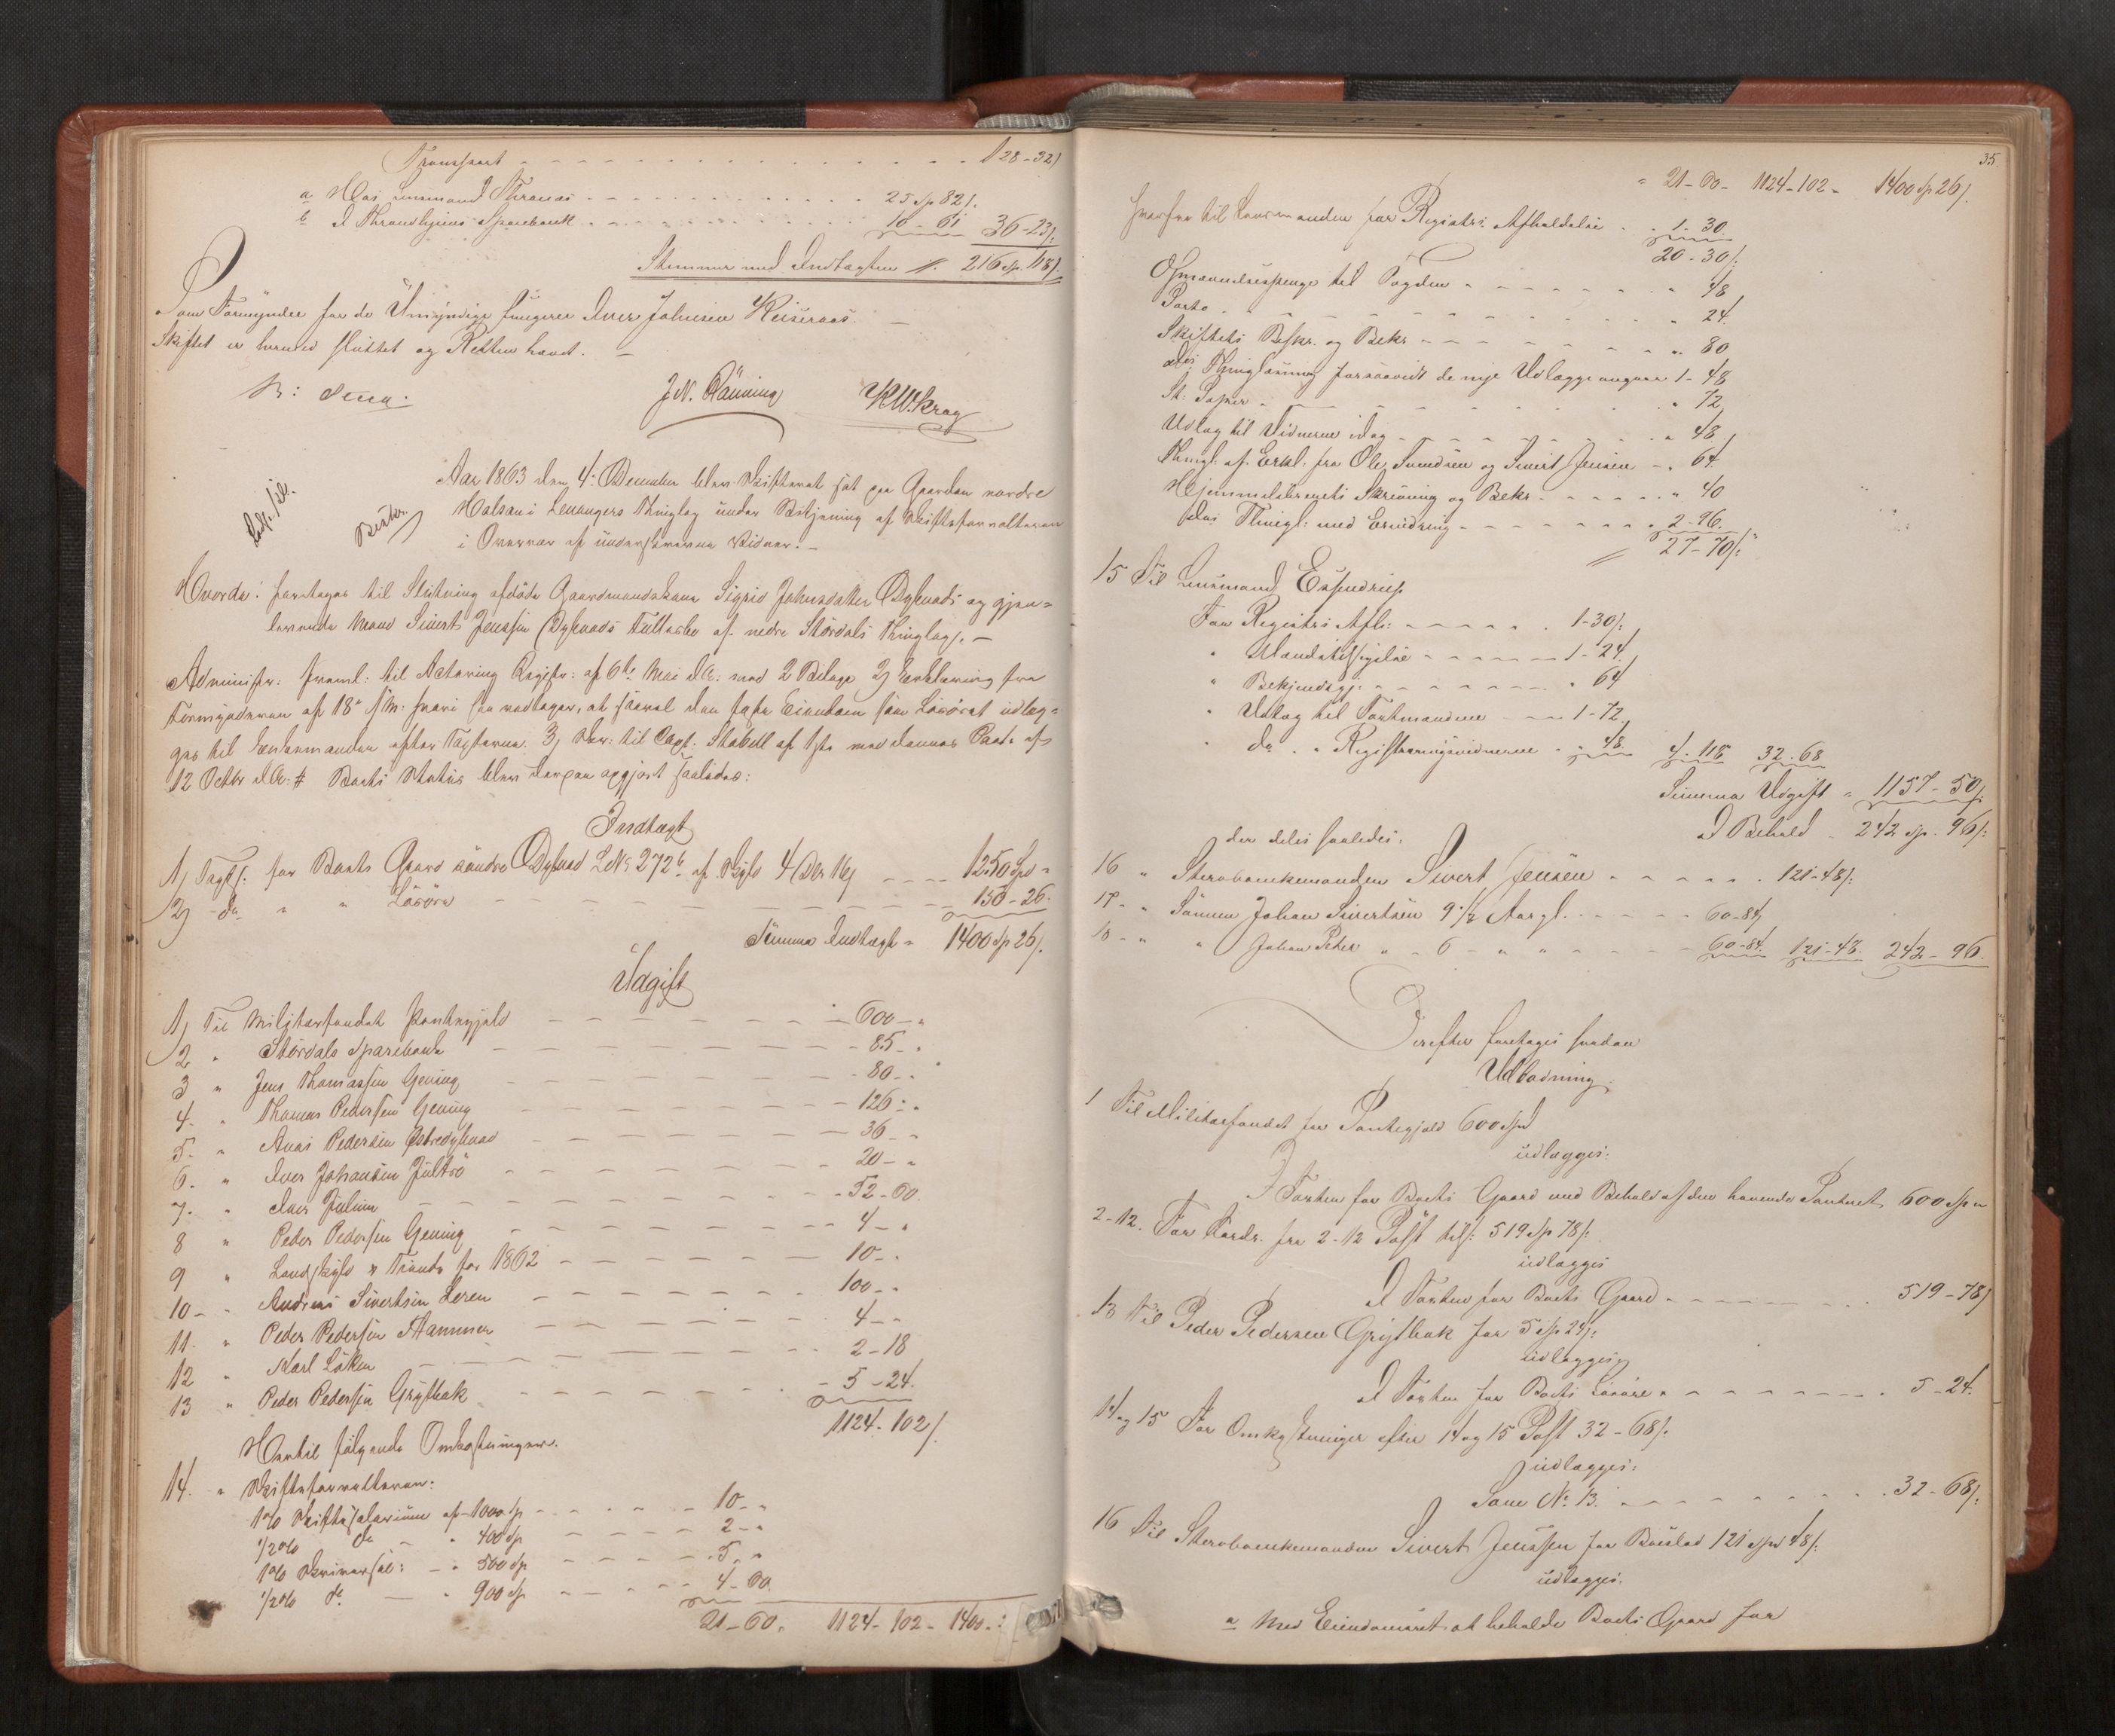 Transport - - - 128-32/
a Hos Lensmand Thranes - - - 25 Sp 82/.
b I Throndhjems Sparebank - - - 10 - 61 36-23/.
Stemmer med Indtægten //. 216 Sp. 118/.
Som Formynder for de Umyndige fungerer Iver Johnsen
Skiftet er hermed sluttet og Retten hævet. -
J. N. Rönning K W Krag
Aar 1863 den 4: December blev Skifteret sat paa Gaarden nordre
Halsan i Levangers Thinglag under Betjening af Skifteforvalteren
i Overvær af underskrevne Vidner. -
Beskr.
Hvorda: foretages til Slutning afdøde Gaardmandskone Sigrid Johnsdatter Dyhvads og gjen=
levende Mand Sivert Jenssen Dyhvads Fællesbo af nedre Stördals Thinglag. -
Administr: freml: til Actering Registr: af 6te Mai d.A. med 2 Bilage 2) Erklæring fra
Formynderen af 18 f.M. hvori han vedtager, at saavel den faste Eiendom som Lösöret udlæg=
ges til Enkemanden efter Taxterne. 3, Skr: til Capt. Stabell af med dennes Paat. af
12 Octbr d.A. # Boets Status blev derpaa opgjort saaledes:
Indtægt
1, Taxts. for Boets Gaard söndre Dyhvad L No 272b af Skyld 4 Dlr 16/ - - - 1250 Spd "
2, do " " Lösöre - - - 150-26.
Summa Indtægt " 1400 Sp 26/.
Udgift
1, Til Militærfondet Pantegjeld - - - 600 - "
2 " Stördals Sparebank - - - 85 - "
3 " Jens Thomassen Gening - - - 80 - "
4. " Thomas Pedersen Gening - - - 126 - "
5. " Anas Pedersen Östredyhvad - - - 36 - "
6. " Iver Johansen Jultrö - - - 20 - "
7. " Anes Julum - - - 52-60.
8 " Peder Pedersen Gening - - - 4 - "
9 " Landskyld & Tiende for 1862 - - - 10 - "
10 - " Andreas Sivertsen Leren - - - 100 - "
11. " Peder Pedersen Hammer - - - 4 - "
12 " Karl Löken - - - 2-18
13 " Peder Pedersen Grytbak - - - 5-24.
1124-102/.
Hertil fölgende Omkostninger.
14. " Skifteforvalteren:
1% Skiftesalarium af 1000 Sp - - - 10 - "
1/2% do " 400 Sp - - - 2 - "
1% Skriversal: - " 500 Sp - - - 5 - "
1/2% do - " 900 Sp - - - 4-60
21-60. 1124-102- 1400 -
35.
" 21-60- 1124-102- 1400 Sp 26/.
herfra til Lensmanden for Registr: Afholdelse - " 1-30.
20-30/.
Opmandspenge til Fogden - - - " 48
Porto - - - " 24.
Skiftets Beskr. og Bekr - - - " 80
dos Thinglæsning forsaavidt de nye Udlægge angaar 1-48
St: Papir - - - " 72
Udlæg til Vidnerne idag - - - " 48
Thingl. af Erkl: fra Ole Svendsen og Sivert Jensen - " 64.
Hjemmelsbrevets Skrivning og Bekr - - - " 40
dos Thingl: med - - - 2-96.
27-70/.
15 Til Lensmand Essendrup
For Registrs Afh: - - - 1-30/.
" Mandtilsigelse - - - 1-24.
" Bekjendtgj: - - - " 64
" Udlæg til Taxtmændene - - 1-72
" do " Registreringsvidnerne - " 48 4-118 32-68
Summa Udgift " 1157-50/.
I Behold - 242 Sp. 96/.
der deles saaledes.
16 " Sterboenkemanden Sivert Jensen - - - 121-48/.
17 - " Sönnen Johan Sivertsen 9 1/2 Aar gl. - - - 60-84
18 - " " Johan Peter " - 6 - " " - - - 60-84. 121-48. 242-96
Derefter foretages saadan
Udlodning.
1 Til Militærfondet for Pantegjeld 600 Spd
udlægges:
I Taxten for Boets Gaard med Behold af den havende Panteret 600 Sp "
2-12. For Fordr. fra 2-12 Post tils: 519 Sp 78/.
udlægges
I Taxten for Boets Gaard - - - 519-78/
13 Til Peder Pedersen Grytbak for 5 Sp 24/.
udlægges
I Taxten for Boets Lösöre - - - 5-24.
14 og 15 For Omkostninger efter 14 og 15 Post 32-68/.
udlægges:
Som No 13. - - - 32-68/.
16 Til Sterboenkemanden Sivert Jenssen for Boeslod 121 Spd 48/.
udlægges.
a Med Eiendomsret at beholde Boets Gaard for